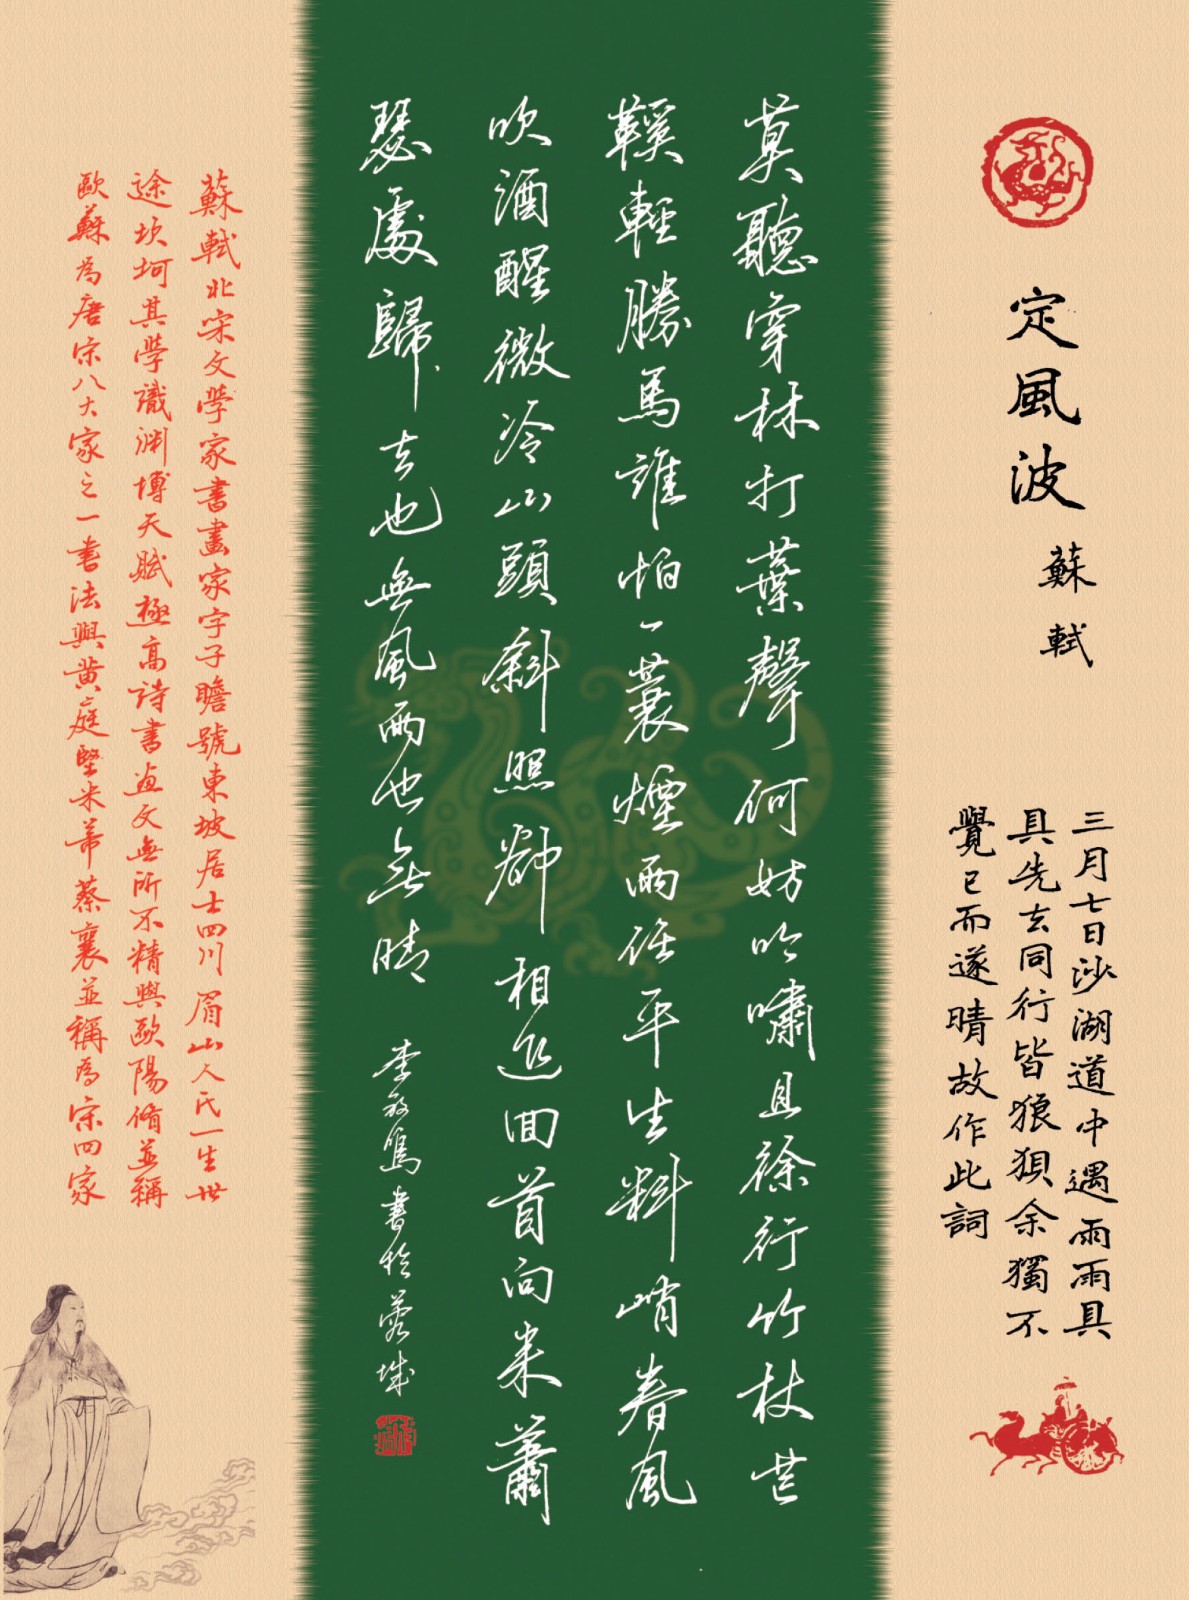 定風波
蘇軾
三月七日沙湖道中遇雨雨具
具先去同行皆狼狽余獨不
覺已而遂晴故作此詞
莫聽穿林打葉聲何妨吟嘯且徐行竹杖芒
鞵輕勝馬誰怕一蓑煙雨任平生料峭春風
吹酒醒微冷山頭斜照卻相迎回首向來蕭
瑟處歸去也無風雨也無晴
李放鳴書於蓉城
蘇軾北宋文學家書畫家字子瞻號東坡居士四川眉山人氏一生世
途坎坷其學識淵博天賦極高詩書畫文無所不精與歐陽脩並稱
歐蘇為唐宋八大家之一書法與黃庭堅米芾蔡襄並稱為宋四家